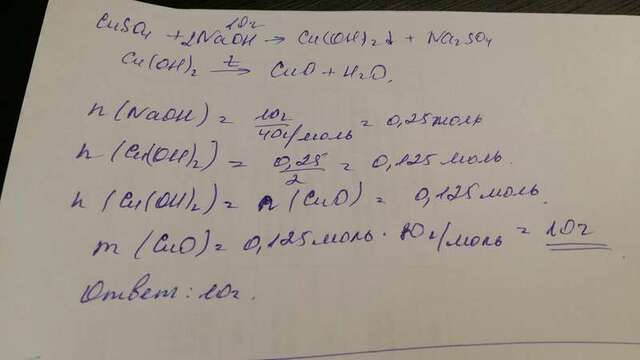 10г
CuSO₄ + 2NaOH → Cu(OH)₂↓ + Na₂SO₄
Cu(OH)₂ —t→ CuO + H₂O.
n (NaOH) = 10г / 40г/моль = 0,25 моль
n (Cu(OH)₂) = 0,25 / 2 = 0,125 моль.
n (Cu(OH)₂) = n (CuO) = 0,125 моль.
m (CuO) = 0,125 моль · 80г/моль = 10г
Ответ: 10г.